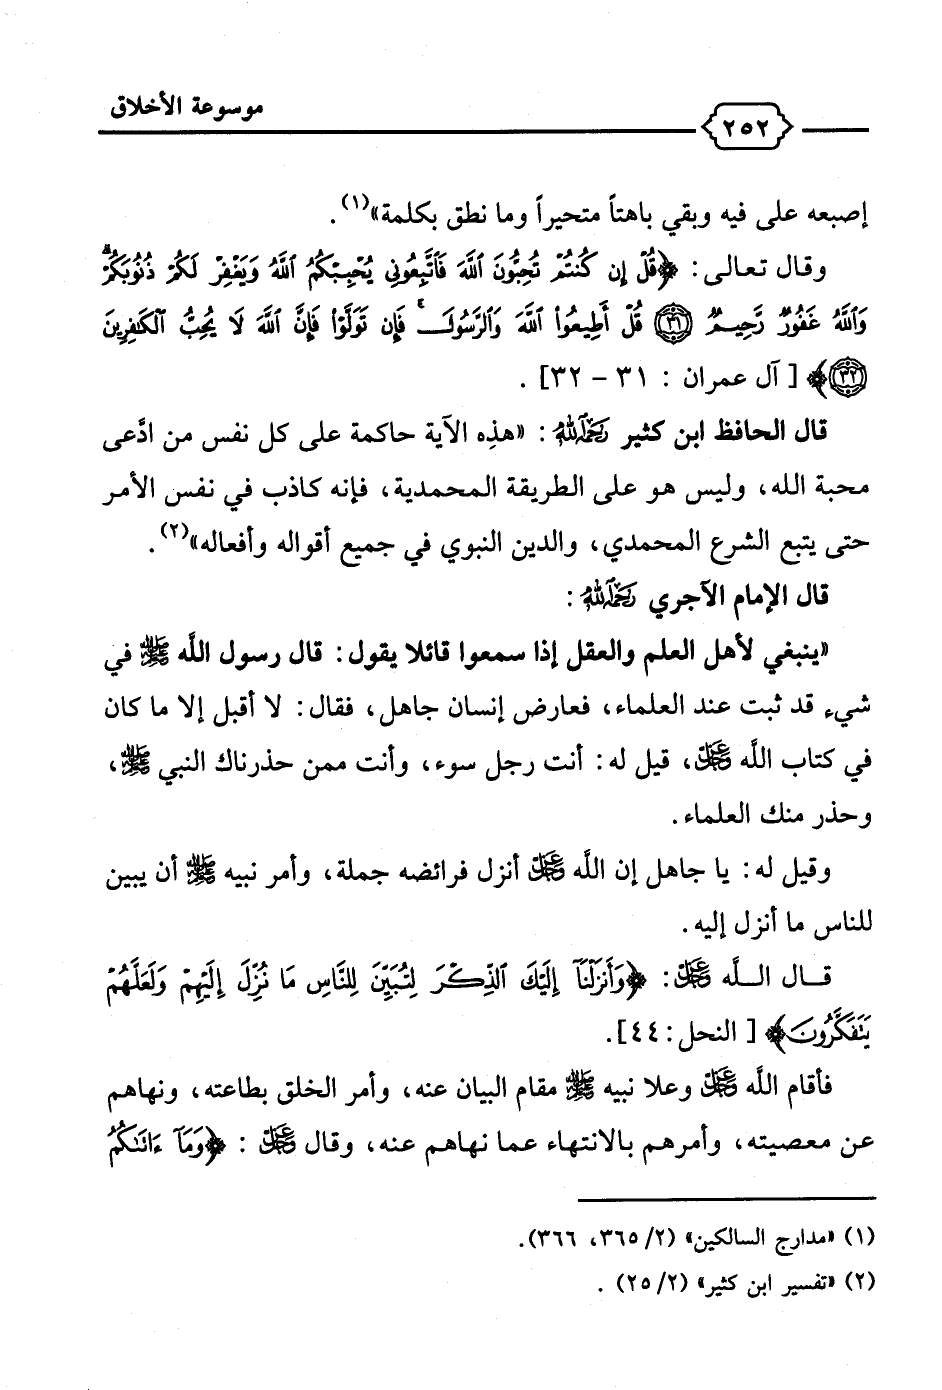 موسوعة الأخلاق
٢٥٢
إصبعه على فيه وبقي باهتاً متحيراً وما نطق بكلمة»(١) .
وقال تعالى: ﴿قُلْ إِن كُنتُمْ تُحِبُّونَ ٱللَّهَ فَٱتَّبِعُونِي يُحْبِبْكُمُ ٱللَّهُ وَيَغْفِرْ لَكُمْ ذُنُوبَكُمْۗ
وَٱللَّهُ غَفُورٌ رَّحِيمٌ ۝٣١ قُلْ أَطِيعُوا۟ ٱللَّهَ وَٱلرَّسُولَۖ فَإِن تَوَلَّوْا۟ فَإِنَّ ٱللَّهَ لَا يُحِبُّ ٱلْكَٰفِرِينَ
۝٣٢﴾ [ آل عمران : ٣١ – ٣٢] .
قال الحافظ ابن كثير رَحِمَهُ اللَّهُ : «هذِه الآية حاكمة على كل نفس من ادَّعى
محبة الله، وليس هو على الطريقة المحمدية، فإنه كاذب في نفس الأمر
حتى يتبع الشرع المحمدي، والدين النبوي في جميع أقواله وأفعاله»(٢) .
قال الإمام الآجري رَحِمَهُ اللَّهُ :
«ينبغي لأهل العلم والعقل إذا سمعوا قائلا يقول: قال رسول اللَّه ﷺ في
شيء قد ثبت عند العلماء، فعارض إنسان جاهل، فقال: لا أقبل إلا ما كان
في كتاب اللَّه عَزَّ وَجَلَّ، قيل له: أنت رجل سوء، وأنت ممن حذرناك النبي ﷺ،
وحذر منك العلماء.
وقيل له: يا جاهل إن اللَّه عَزَّ وَجَلَّ أنزل فرائضه جملة، وأمر نبيه ﷺ أن يبين
للناس ما أنزل إليه.
قال اللَّه عَزَّ وَجَلَّ: ﴿وَأَنزَلْنَآ إِلَيْكَ ٱلذِّكْرَ لِتُبَيِّنَ لِلنَّاسِ مَا نُزِّلَ إِلَيْهِمْ وَلَعَلَّهُمْ
يَتَفَكَّرُونَ﴾ [ النحل:٤٤].
فأقام اللَّه عَزَّ وَجَلَّ وعلا نبيه ﷺ مقام البيان عنه، وأمر الخلق بطاعته، ونهاهم
عن معصيته، وأمرهم بالانتهاء عما نهاهم عنه، وقال عَزَّ وَجَلَّ : ﴿وَمَآ ءَاتَىٰكُمُ
(١) «مدارج السالكين» (٣٦٥/٢، ٣٦٦).
(٢) «تفسير ابن كثير» (٢٥/٢) .